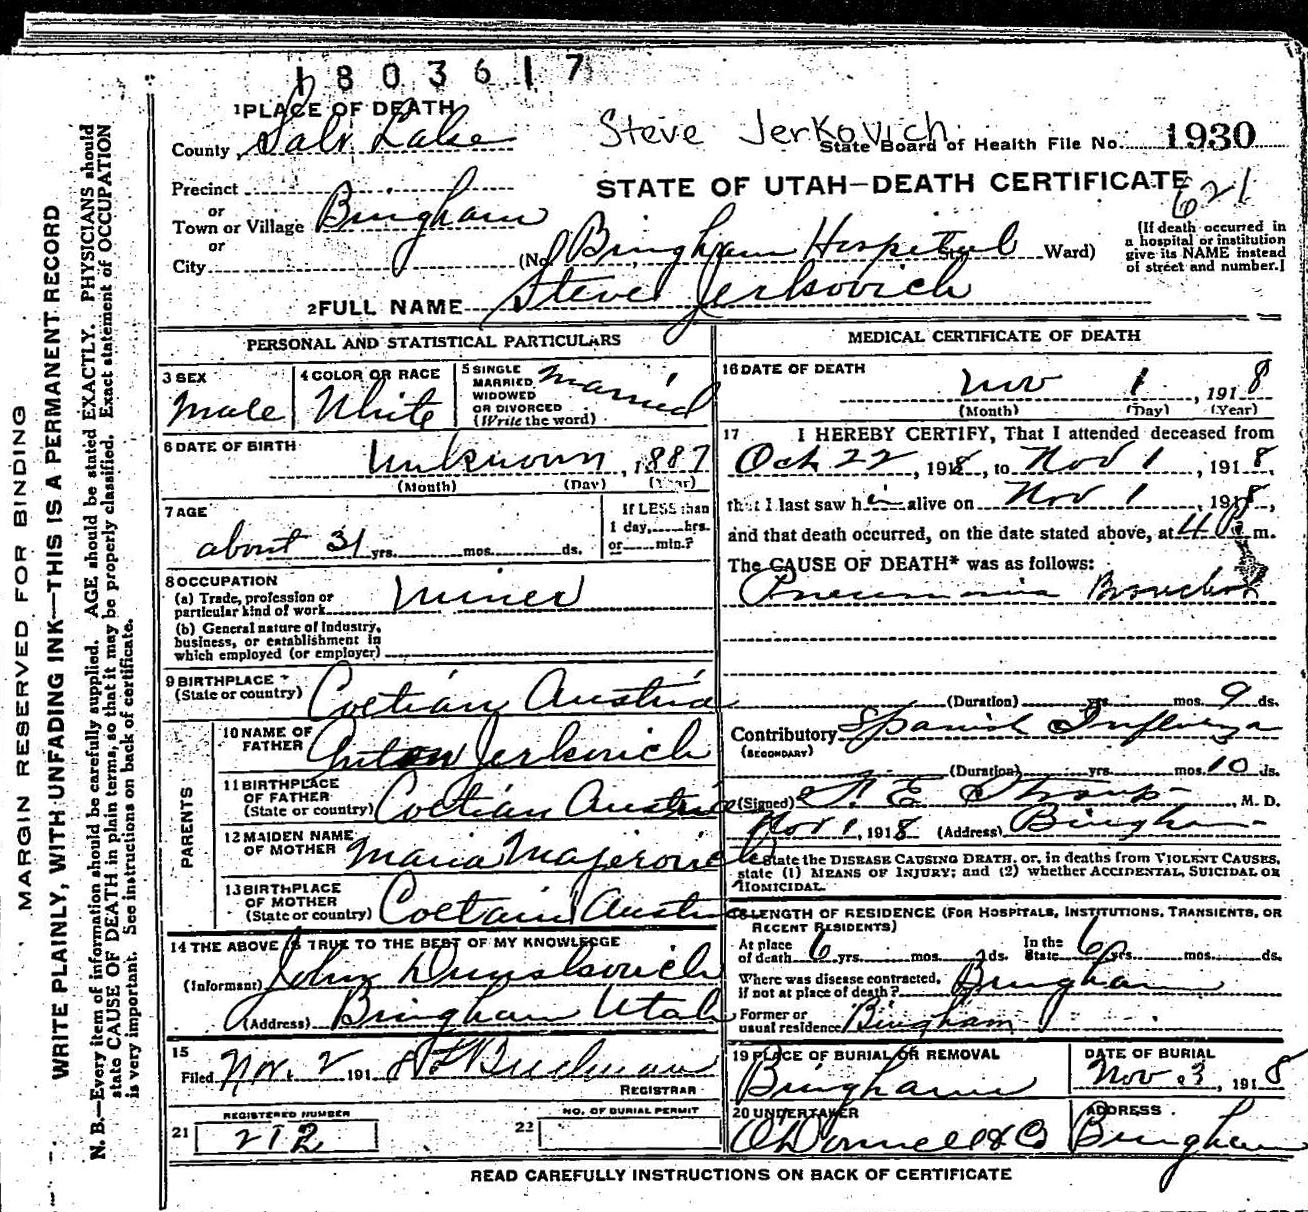 1803617
1 PLACE OF DEATH
County Salt Lake
Steve Jerkovich
State Board of Health File No. 1930
Precinct
or
Town or Village Bingham
or
City
STATE OF UTAH—DEATH CERTIFICATE
621
(No. Bingham Hospital St. Ward)
(If death occurred in
a hospital or institution
give its NAME instead
of street and number.]
2 FULL NAME Steve Jerkovich
PERSONAL AND STATISTICAL PARTICULARS
3 SEX
Male
4 COLOR OR RACE
White
5 SINGLE
MARRIED
WIDOWED
OR DIVORCED
(Write the word)
Married
6 DATE OF BIRTH
Unknown, 1887
(Month) (Day) (Year)
7 AGE
about 31 yrs. mos. ds.
If LESS than
1 day, hrs.
or min.?
8 OCCUPATION
(a) Trade, profession or
particular kind of work Miner
(b) General nature of Industry,
business, or establishment in
which employed (or employer)
9 BIRTHPLACE
(State or country) Coetian Austria
PARENTS
10 NAME OF
FATHER Anton Jerkovich
11 BIRTHPLACE
OF FATHER
(State or country) Coetian Austria
12 MAIDEN NAME
OF MOTHER Maria Majerovich
13 BIRTHPLACE
OF MOTHER
(State or country) Coetain Austria
14 THE ABOVE IS TRUE TO THE BEST OF MY KNOWLEDGE
(Informant) John
(Address) Bingham Utah
15
Filed Nov. 2 1918 Buchman
REGISTRAR
REGISTERED NUMBER
21 212
NO. OF BURIAL PERMIT
22
MEDICAL CERTIFICATE OF DEATH
16 DATE OF DEATH
Nov 1, 1918
(Month) (Day) (Year)
17 I HEREBY CERTIFY, That I attended deceased from
Oct 22, 1918, to Nov 1, 1918,
that I last saw him alive on Nov 1, 1918,
and that death occurred, on the date stated above, at 4 P m.
The CAUSE OF DEATH* was as follows:
Pneumonia Bronchial
(Duration) yrs. mos. 9 ds.
Contributory Spanish Influenza
(SECONDARY)
(Duration) yrs. mos. 10 ds.
(Signed) E M. D.
Nov 1, 1918 (Address) Bingham
State the DISEASE CAUSING DEATH, or, in deaths from VIOLENT CAUSES,
state (1) MEANS OF INJURY; and (2) whether ACCIDENTAL, SUICIDAL OR
HOMICIDAL.
18 LENGTH OF RESIDENCE (FOR HOSPITALS, INSTITUTIONS, TRANSIENTS, OR
RECENT RESIDENTS)
At place
of death 6 yrs. mos. ds.
In the
State 6 yrs. mos. ds.
Where was disease contracted,
if not at place of death? Bingham
Former or
usual residence Bingham
19 PLACE OF BURIAL OR REMOVAL
Bingham
DATE OF BURIAL
Nov 3, 1918
20 UNDERTAKER
O'Donnell & Co
ADDRESS
Bingham
READ CAREFULLY INSTRUCTIONS ON BACK OF CERTIFICATE
MARGIN RESERVED FOR BINDING
WRITE PLAINLY, WITH UNFADING INK—THIS IS A PERMANENT RECORD
N. B.—Every item of information should be carefully supplied. AGE should be stated EXACTLY. PHYSICIANS should
state CAUSE OF DEATH in plain terms, so that it may be properly classified. Exact statement of OCCUPATION
is very important. See instructions on back of certificate.